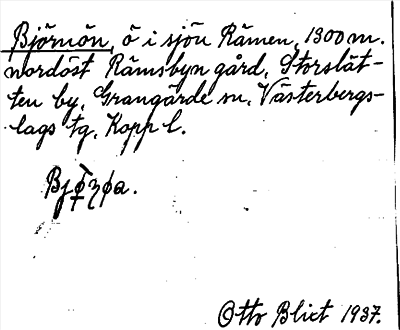 Björnön, ö i sjön Rämen, 1300 m.
nordöst Rämsbyn gård, Storslät-
ten by, Grangärde sn, Västerbergs-
lags tg, Kopp l.
Otto Blixt 1937.